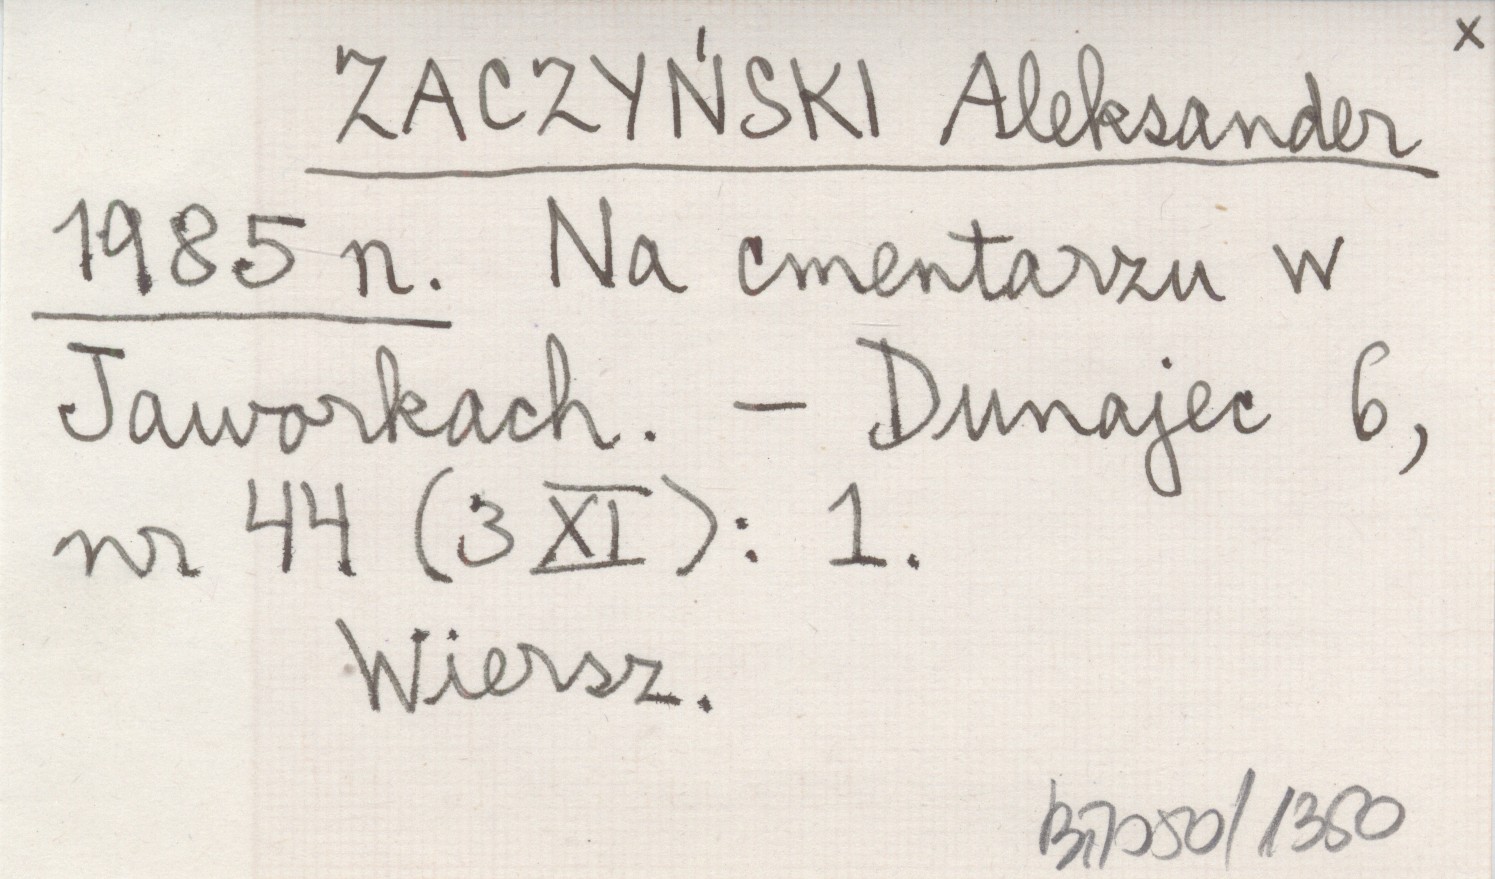 x
ZACZYŃSKI Aleksander
1985 n. Na cmentarzu w
Jaworkach. – Dunajec 6,
nr 44 (3 XI): 1.
Wiersz.